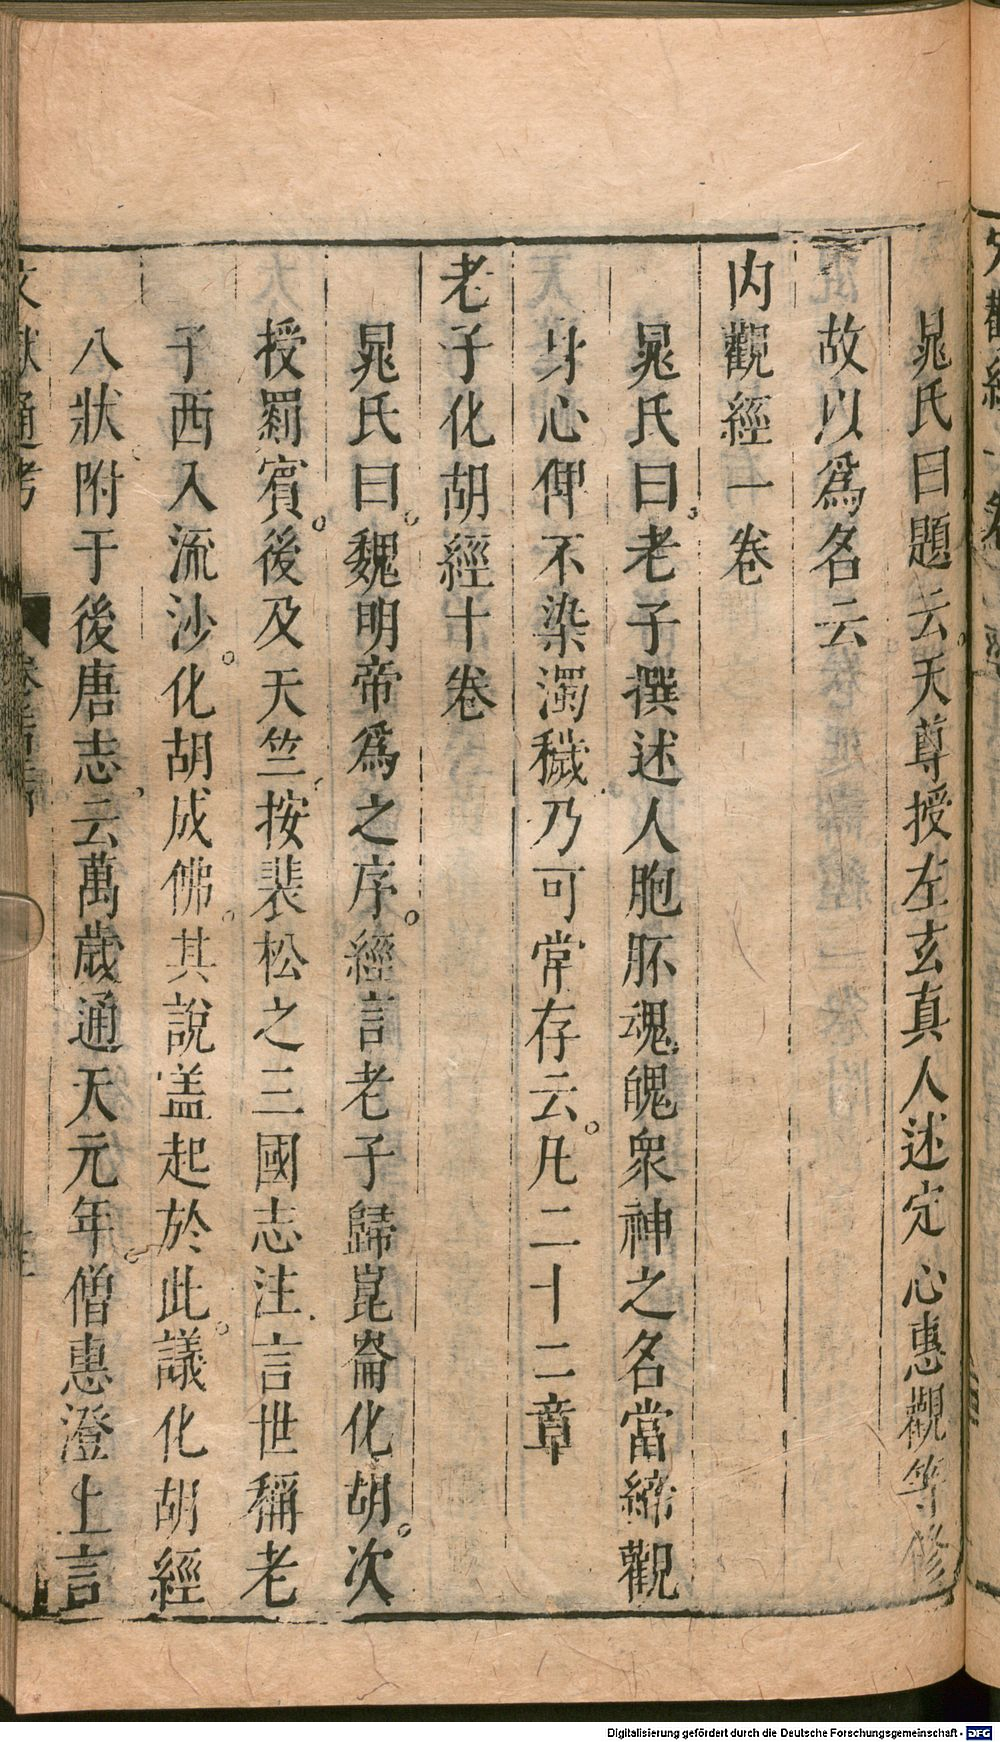 晁氏曰題云天尊授左玄真人述定心惠觀等修
故以爲名云
内觀經一卷
晁氏曰老子撰述人胞胚魂魄衆神之名當締觀
身心俾不染濁穢乃可常存云凡二十二章
老子化胡經十卷
晁氏曰魏明帝爲之序經言老子歸崑崙化胡次
授罽賓後及天竺按裴松之三國志注言世稱老
子西入流沙化胡成佛其說盖起於此議化胡經
八狀附于後唐志云萬歲通天元年僧惠澄上言
文獻通考
Digitalisierung gefördert durch die Deutsche Forschungsgemeinschaft - DFG